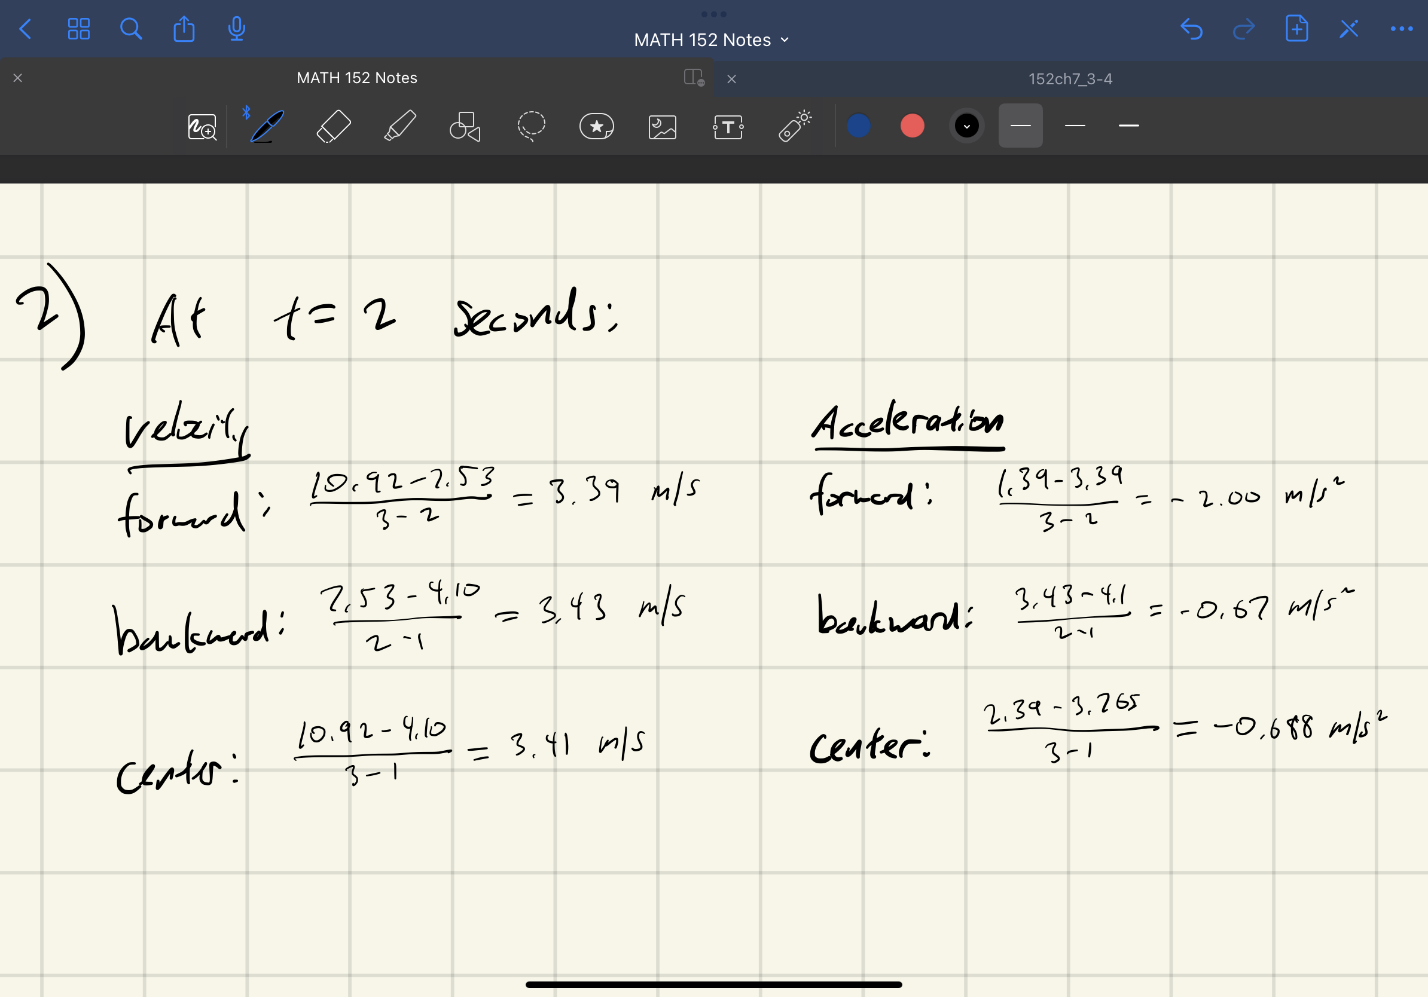 MATH 152 Notes
MATH 152 Notes
152ch7_3-4
T
2) At t = 2 seconds:
velocity
forward: (10.92-7.53)/(3-2) = 3.39 m/s
backward: (7.53-4.10)/(2-1) = 3.43 m/s
center: (10.92-4.10)/(3-1) = 3.41 m/s
Acceleration
forward: (1.39-3.39)/(3-2) = -2.00 m/s²
backward: (3.43-4.1)/(2-1) = -0.67 m/s²
center: (2.39-3.765)/(3-1) = -0.688 m/s²